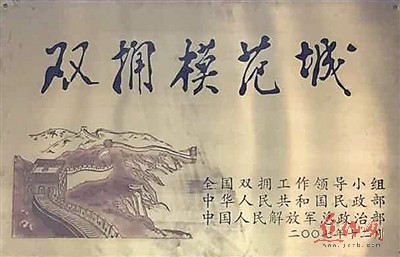 双拥模范城
全国双拥工作领导小组
中华人民共和国民政部
中国人民解放军总政治部
二〇〇七年十二月
正义网
www.jcrb.com